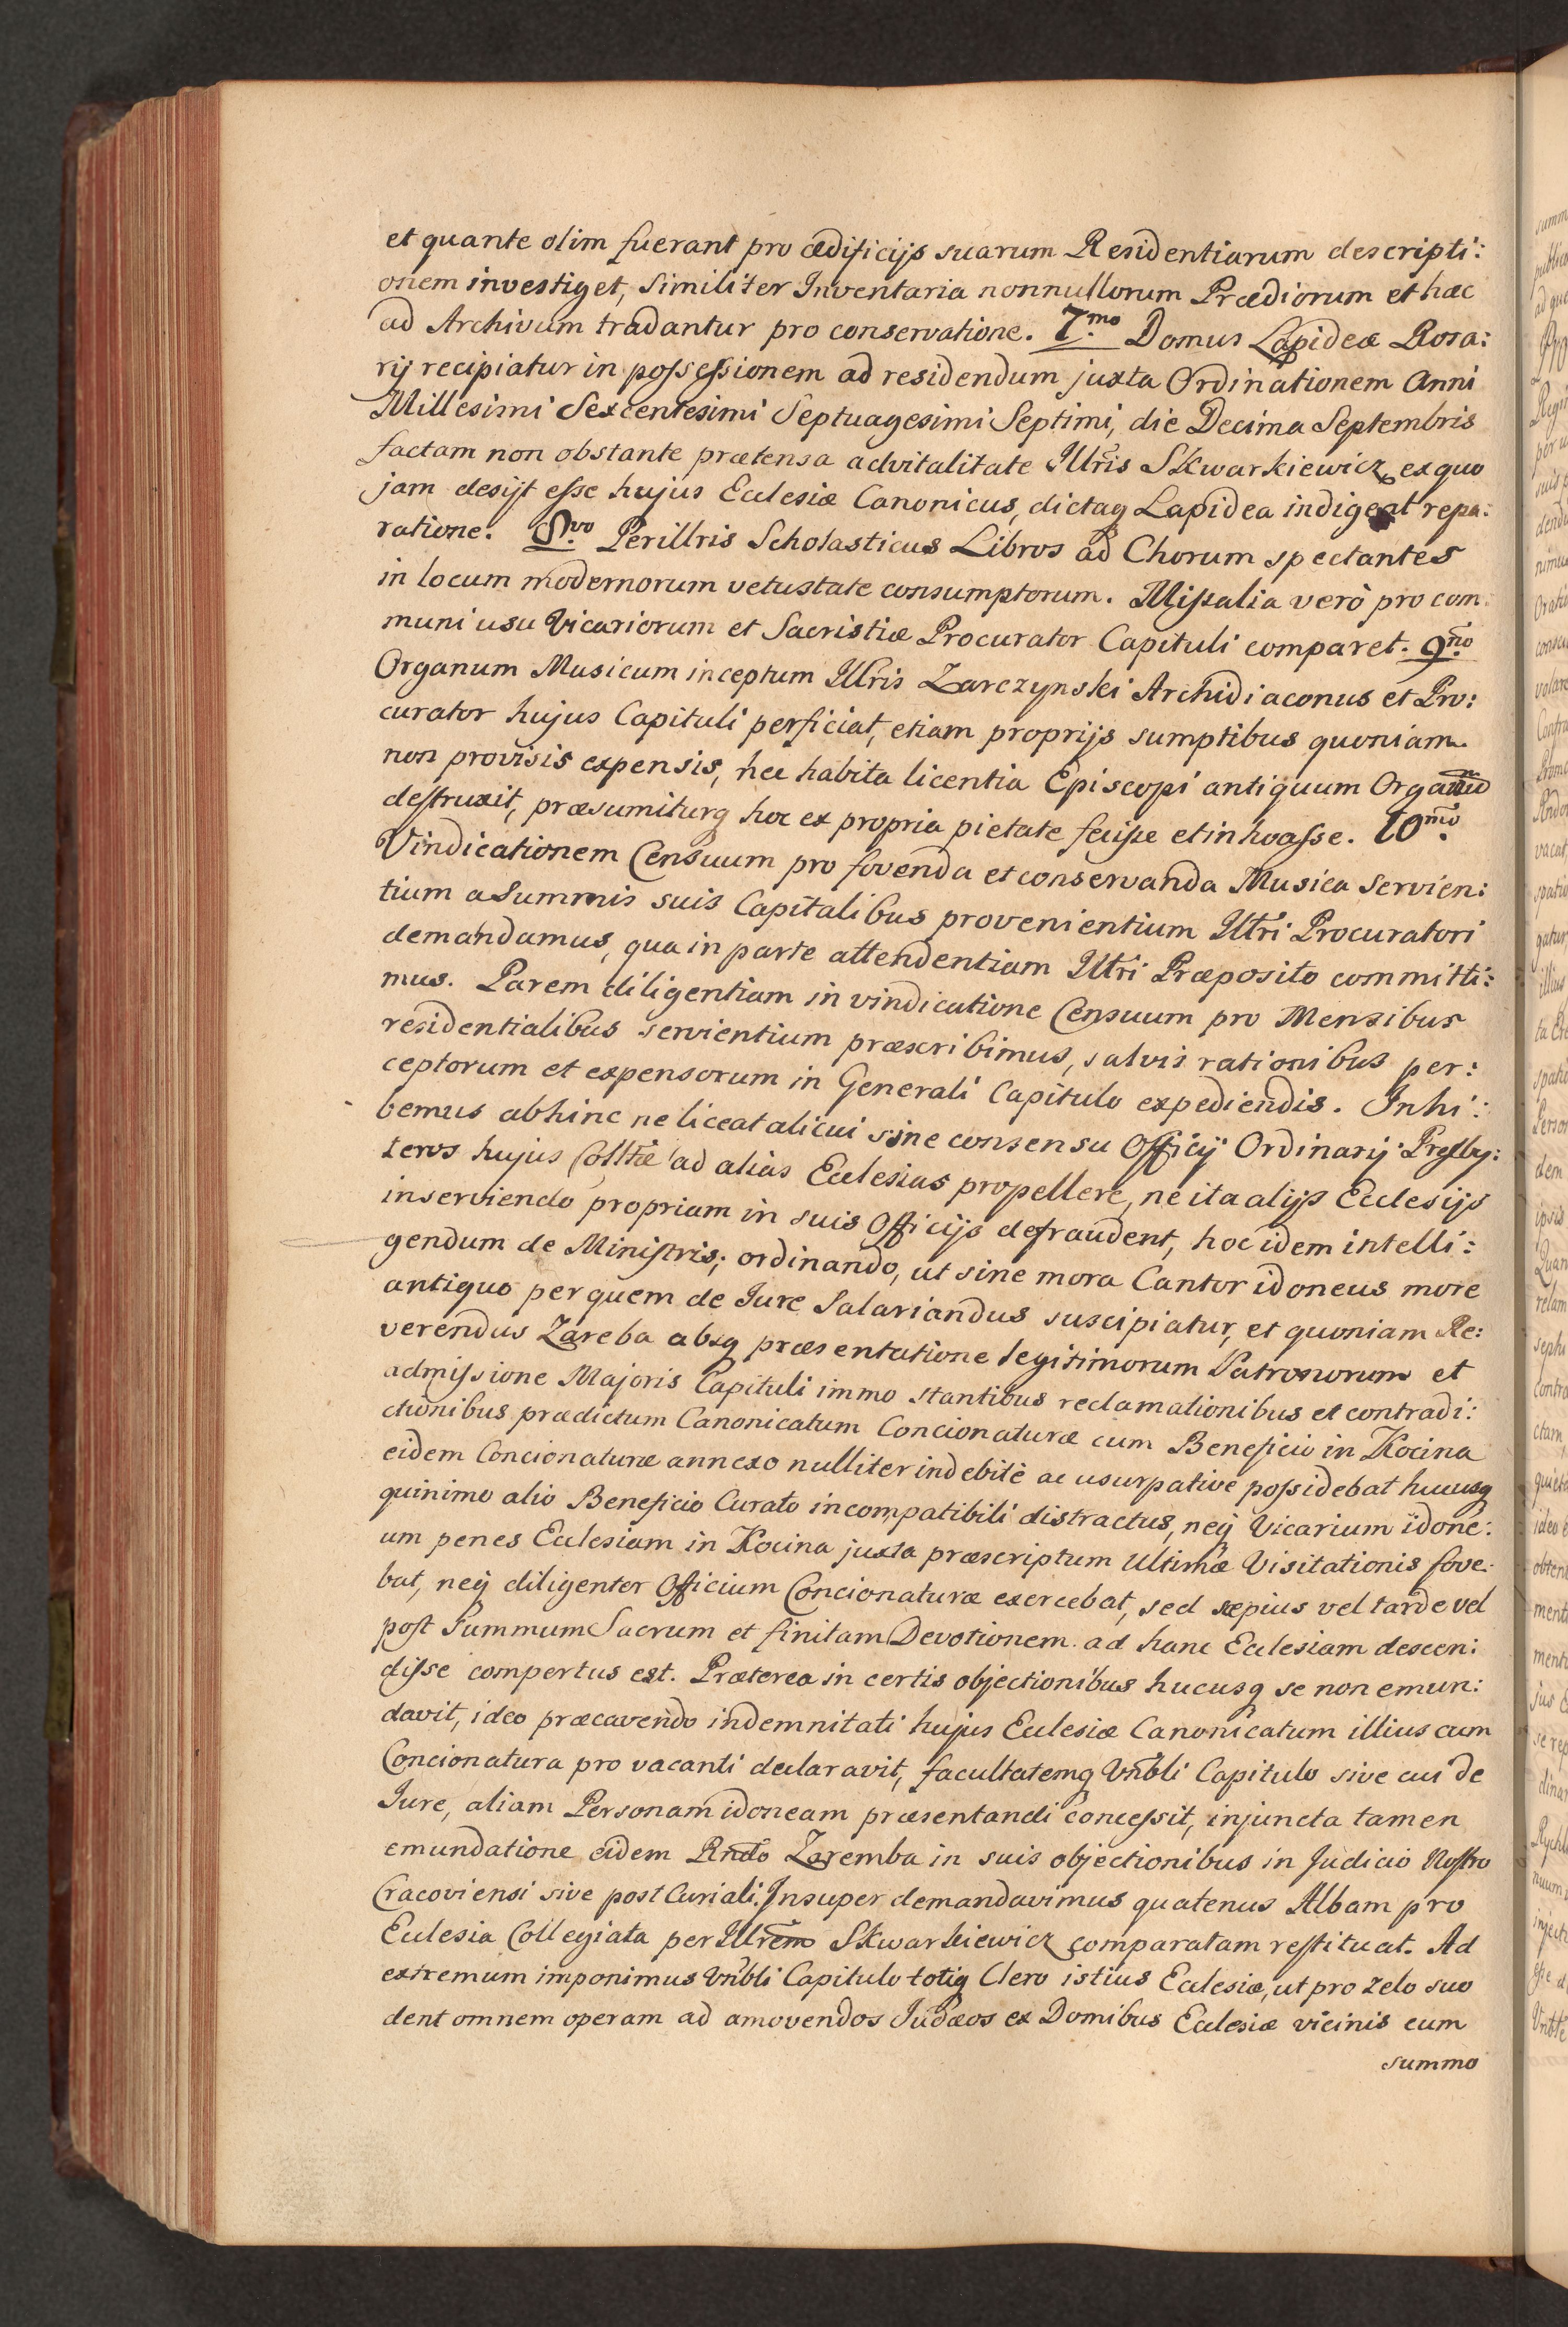 et quante olim fuerant pro ædificijs suarum Residentiarum descripti:
onem investiget, Similiter Inventaria nonnullorum Prædiorum et hæc
ad Archivum tradantur pro conservatione. 7.mo Domus Lapideæ Rosa:
rij recipiatur in possessionem ad residendum juxta Ordinationem Anni
Millesimi Sexcentesimi Septuagesimi Septimi, die Decima Septembris
factam non obstante prætensa advitalitate Illris Skwarkiewicz, ex quo
jam desijt esse hujus Ecclesiæ Canonicus, dictaq Lapidea indigeat repa:
ratione. 8.vo Perillris Scholasticus Libros ad Chorum spectantes
in locum modernorum vetustate consumptorum. Missalia verò pro com:
muni usu Vicariorum et Sacristiæ Procurator Capituli comparet. 9.no
Organum Musicum inceptum Illris Zarczynski Archidiaconus et Pro:
curator hujus Capituli perficiat, etiam proprijs sumptibus quoniam
non provisis expensis, nec habita licentia Episcopi antiquum Organu
destruxit, præsumiturq hoc ex propria pietate fecisse et inhoasse. 10.mo
Vindicationem Censuum pro fovenda et conservanda Musica Servien:
tium a Summis suis Capitalibus provenientium Illri Procuratori
demandamus, qua in parte attendentiam Illri Præposito committi:
mus. Parem diligentiam in vindicatione Censuum pro Mensibus
residentialibus servientium præscribimus, salvis rationibus per:
ceptorum et expensorum in Generali Capitulo expediendis. Inhi:
bemus abhinc ne liceat alicui sine consensu Officij Ordinarij Presby:
teros hujus Colltæ ad alias Ecclesias propellere, ne ita alijs Ecclesijs
inserviendo propriam in suis Officijs defraudent, hoc idem intelli:
gendum de Ministris; ordinando, ut sine mora Cantor idoneus more
antiquo per quem de Jure Salariandus suscipiatur, et quoniam Re:
verendus Zareba absq præsentatione legitimorum Patronorum et
admissione Majoris Capituli immo stantibus reclamationibus et contradi:
ctionibus prædictum Canonicatum Concionaturæ cum Beneficio in Kocina
eidem Concionaturæ annexo nulliter indebitè ac usurpative possidebat hucusq
quinimo alio Beneficio Curato incompatibili distractus, neq Vicarium idone:
um penes Ecclesiam in Kocina juxta præscriptum Ultimæ Visitationis fove:
bat, neq diligenter Officium Concionaturæ exercebat, sed sæpius vel tarde vel
post Summum Sacrum et finitam Devotionem ad hanc Ecclesiam descen:
disse compertus est. Præterea in certis objectionibus hucusq se non emun:
davit, ideo præcavendo indemnitati hujus Ecclesiæ Canonicatum illius cum
Concionatura pro vacanti declaravit, facultatemq Vnbli Capitulo sive cui de
Jure, aliam Personam idoneam præsentandi concessit, injuncta tamen
emundatione eidem Rndo Zaremba in suis objectionibus in Judicio Nostro
Cracoviensi sive post Curiali. Insuper demandavimus quatenus Albam pro
Ecclesia Collegiata per Illrem Skwarkiewicz comparatam restituat. Ad
extremum imponimus Vnbli Capitulo totiq Clero istius Ecclesiæ, ut pro zelo suo
dent omnem operam ad amovendos Judæos ex Domibus Ecclesiæ vicinis cum
summo